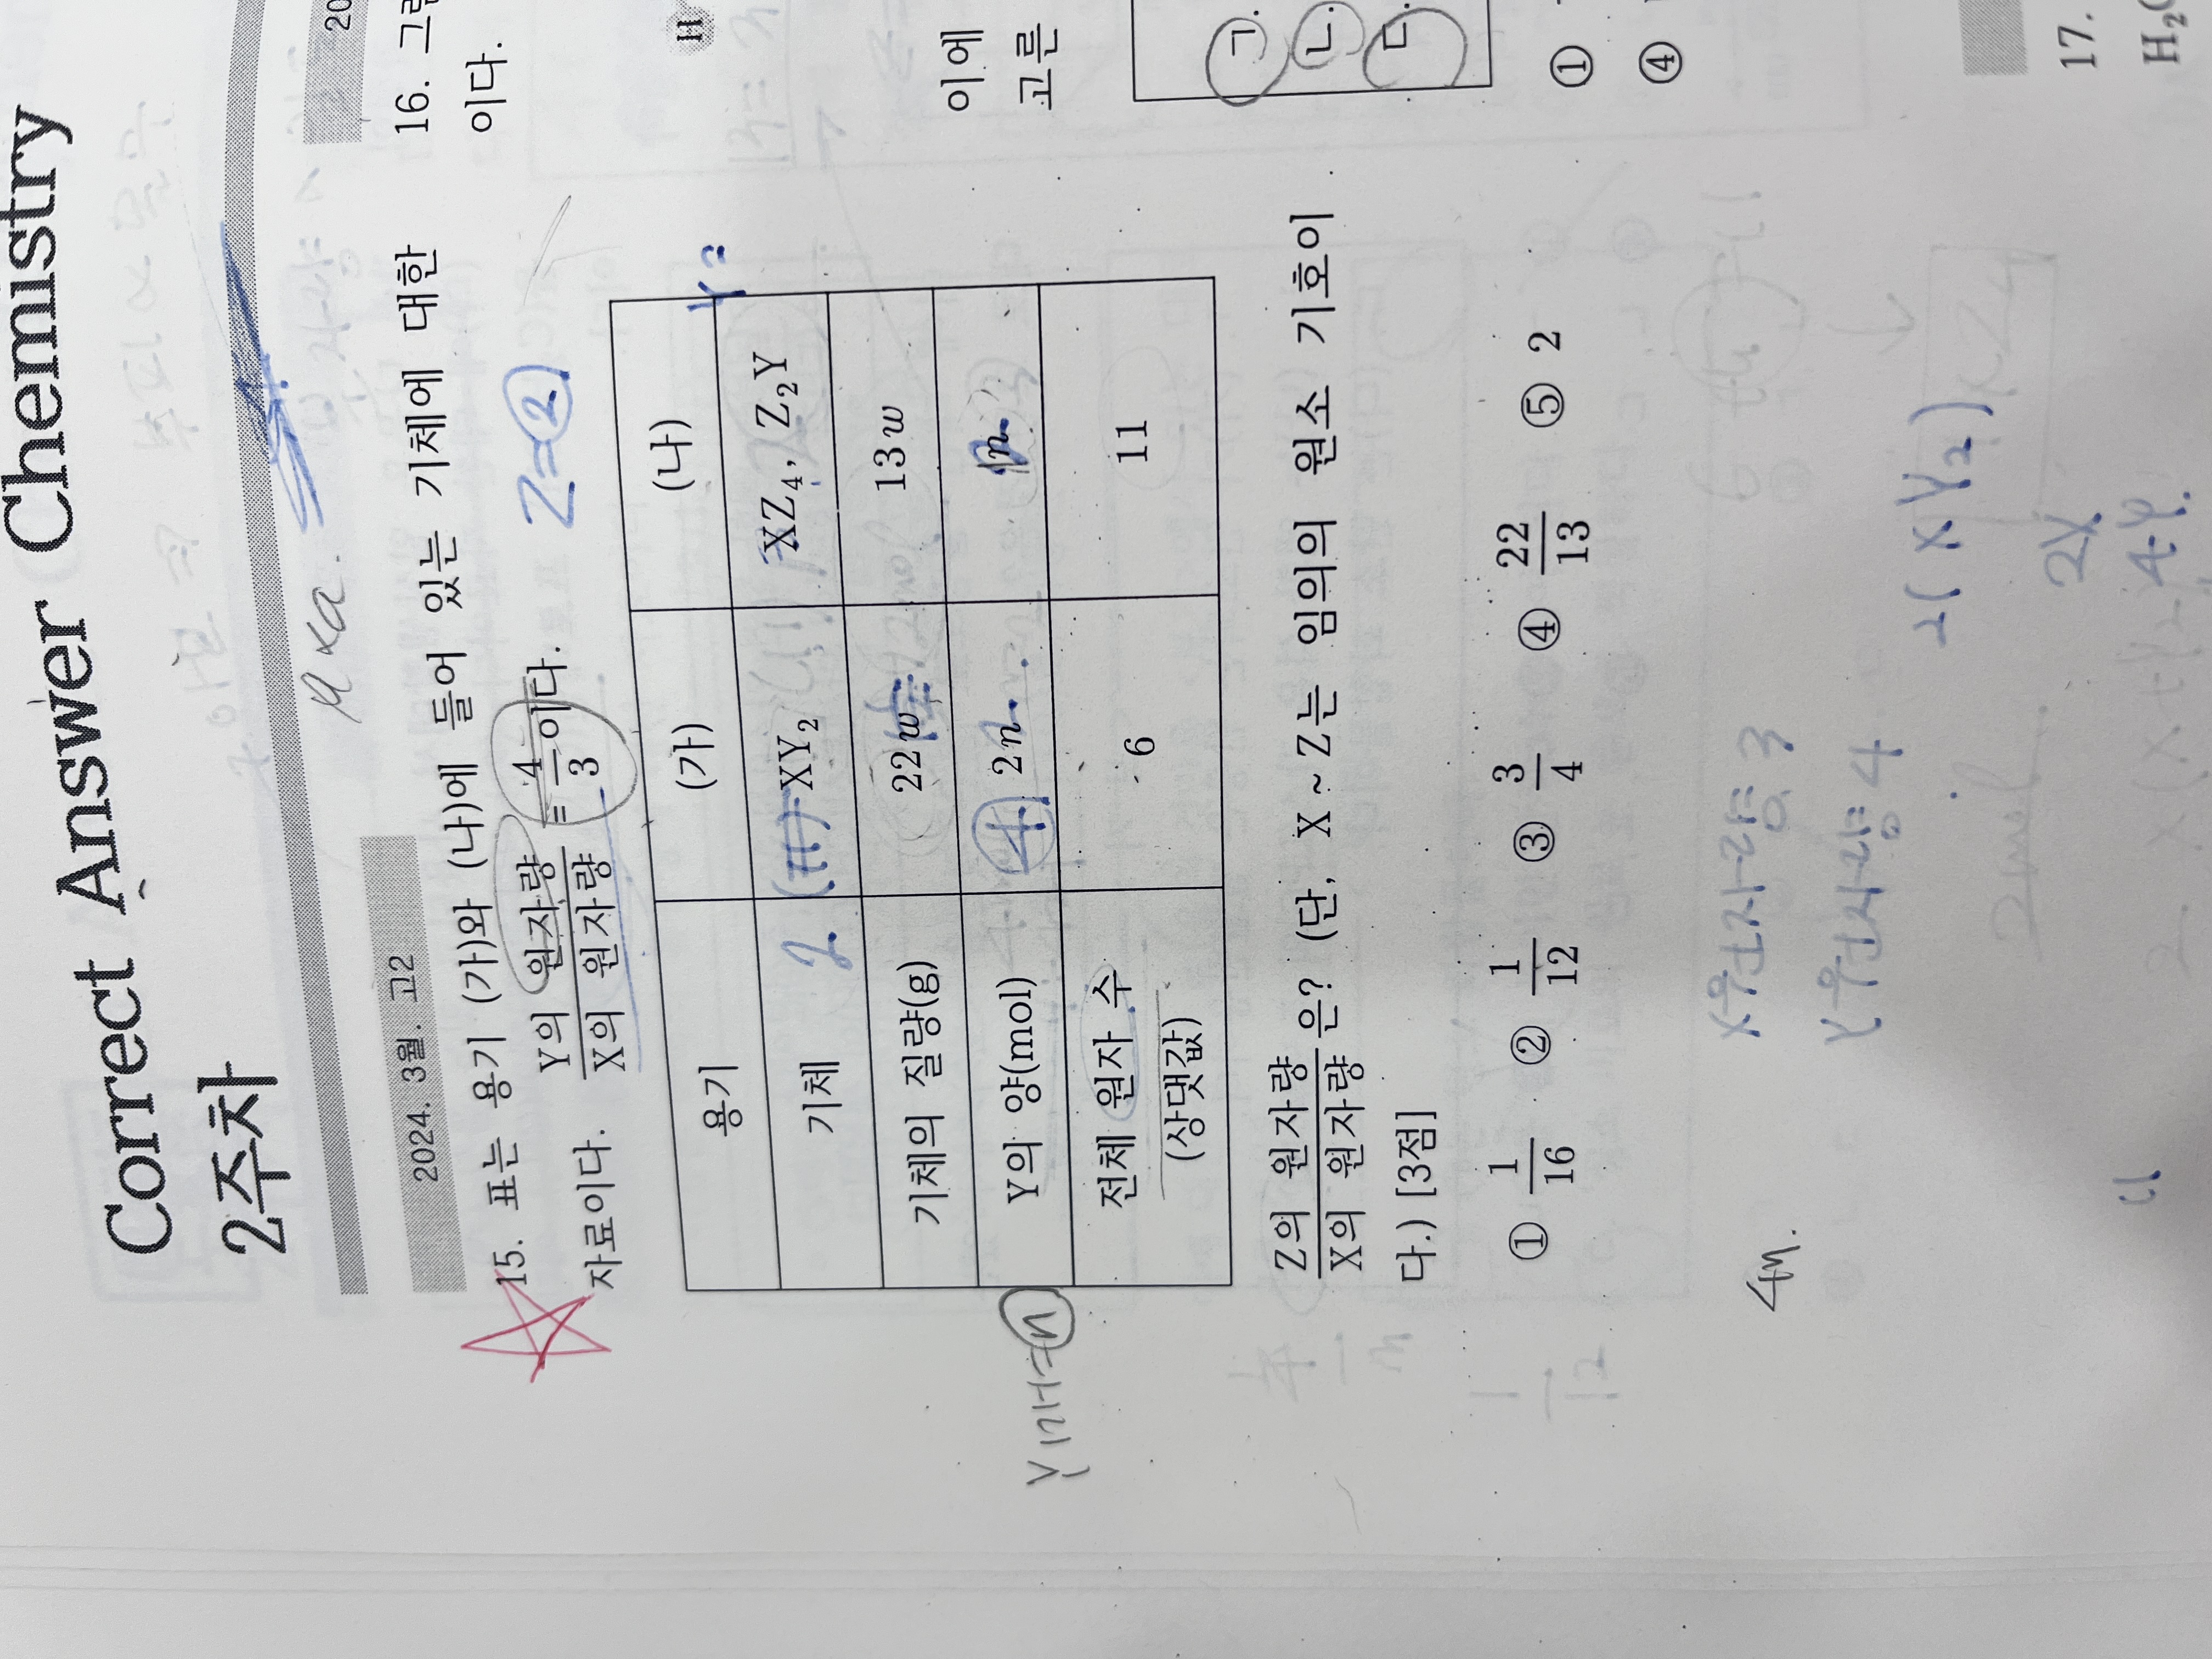 Correct Answer Chemistry
2주차
μ xa.
2024. 3월. 고2
15. 표는 용기 (가)와 (나)에 들어 있는 기체에 대한
자료이다. Y의 원자량/X의 원자량 = 4/3이다.
Z=2
Y=
용기 (가) (나)
기체 XY₂ XZ₄, Z₂Y
2
기체의 질량(g) 22w 13w
Y의 양(mol) 2n n
4
전체 원자 수 (상댓값) 6 11
Z의 원자량/X의 원자량 은? (단, X ~ Z는 임의의 원소 기호이
다.) [3점]
① 1/16 ② 1/12 ③ 3/4 ④ 22/13 ⑤ 2
4n.
X원자량=3
Y원자량=4
2(XY₂)
2X
4Y
16. 그
이다.
H
이에
고른
ㄱ.
ㄴ.
ㄷ.
①
④
17.
H₂